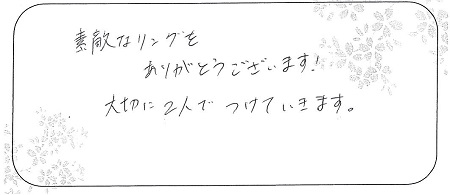 素敵なリングを
ありがとうございます!
大切に2人でつけていきます。